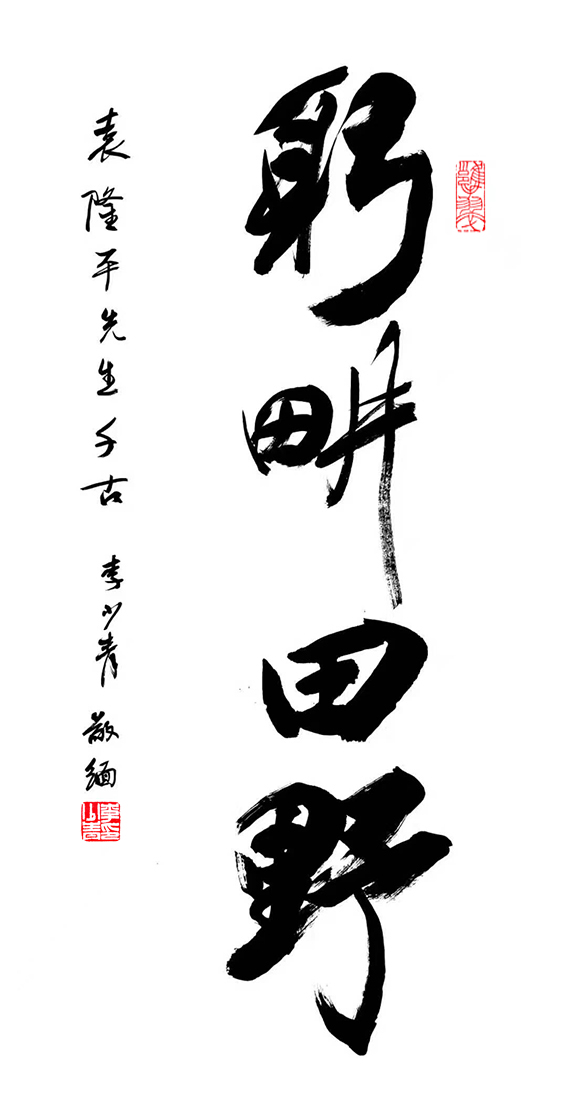 躬畊田野
袁隆平先生千古 李少青 敬缅